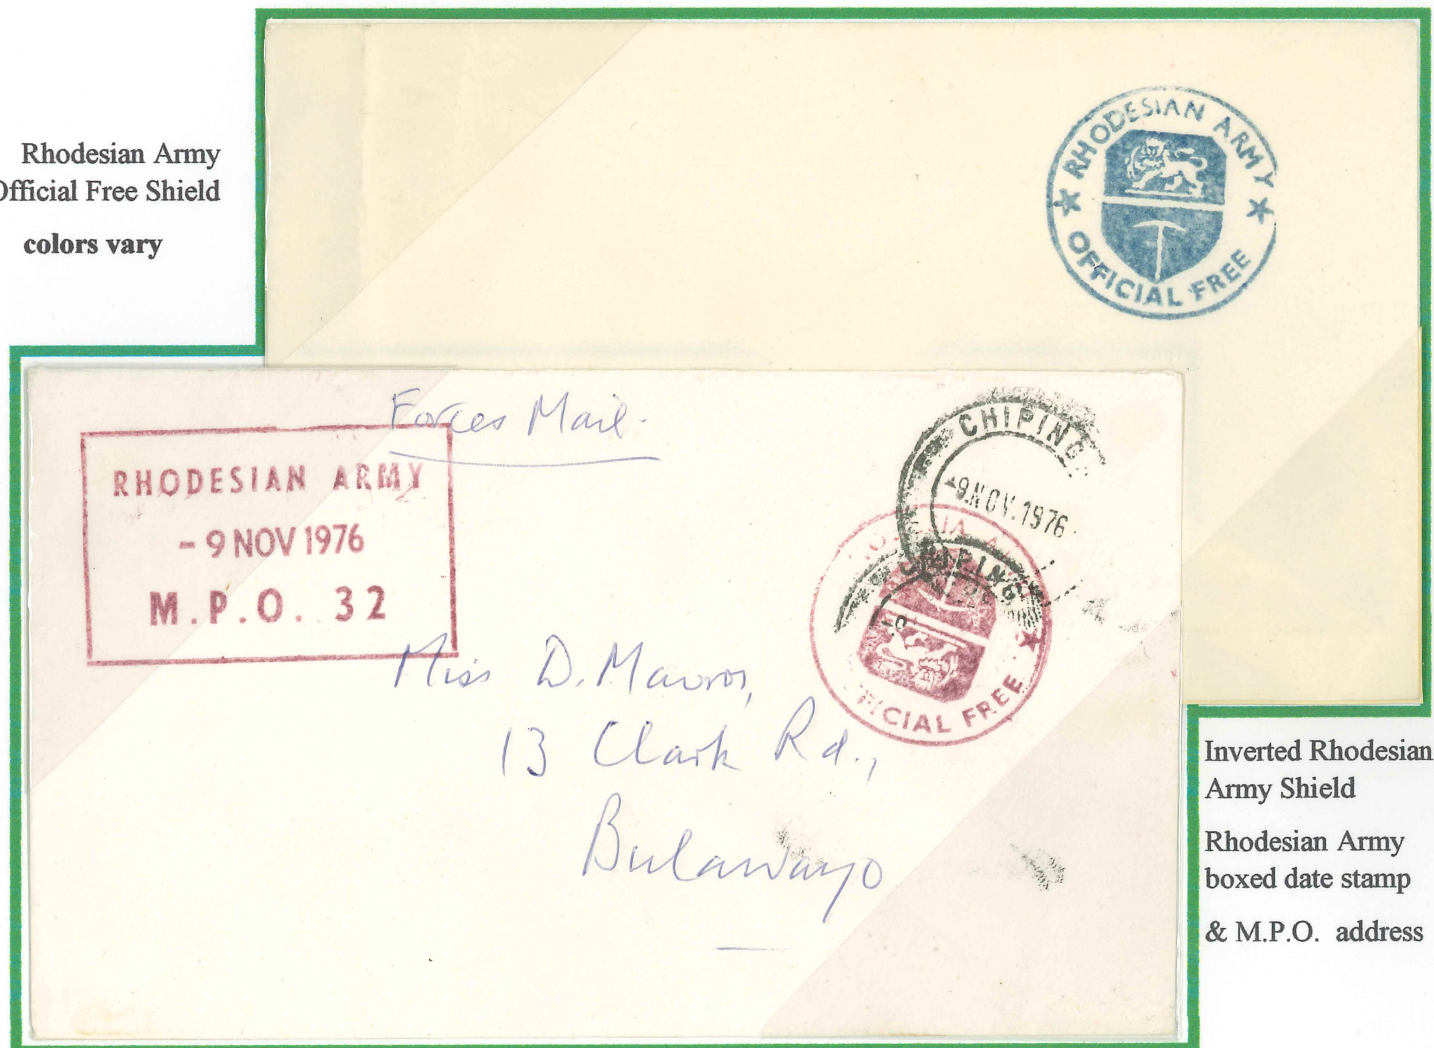 Rhodesian Army
Official Free Shield
colors vary
RHODESIAN ARMY
OFFICIAL FREE
Forces Mail.
RHODESIAN ARMY
- 9 NOV 1976
M.P.O. 32
CHIPING
-9.NOV.1976
CHIPING
FICIAL FREE
Miss D.
13 Clark Rd.,
Bulawayo
Inverted Rhodesian
Army Shield
Rhodesian Army
boxed date stamp
& M.P.O. address